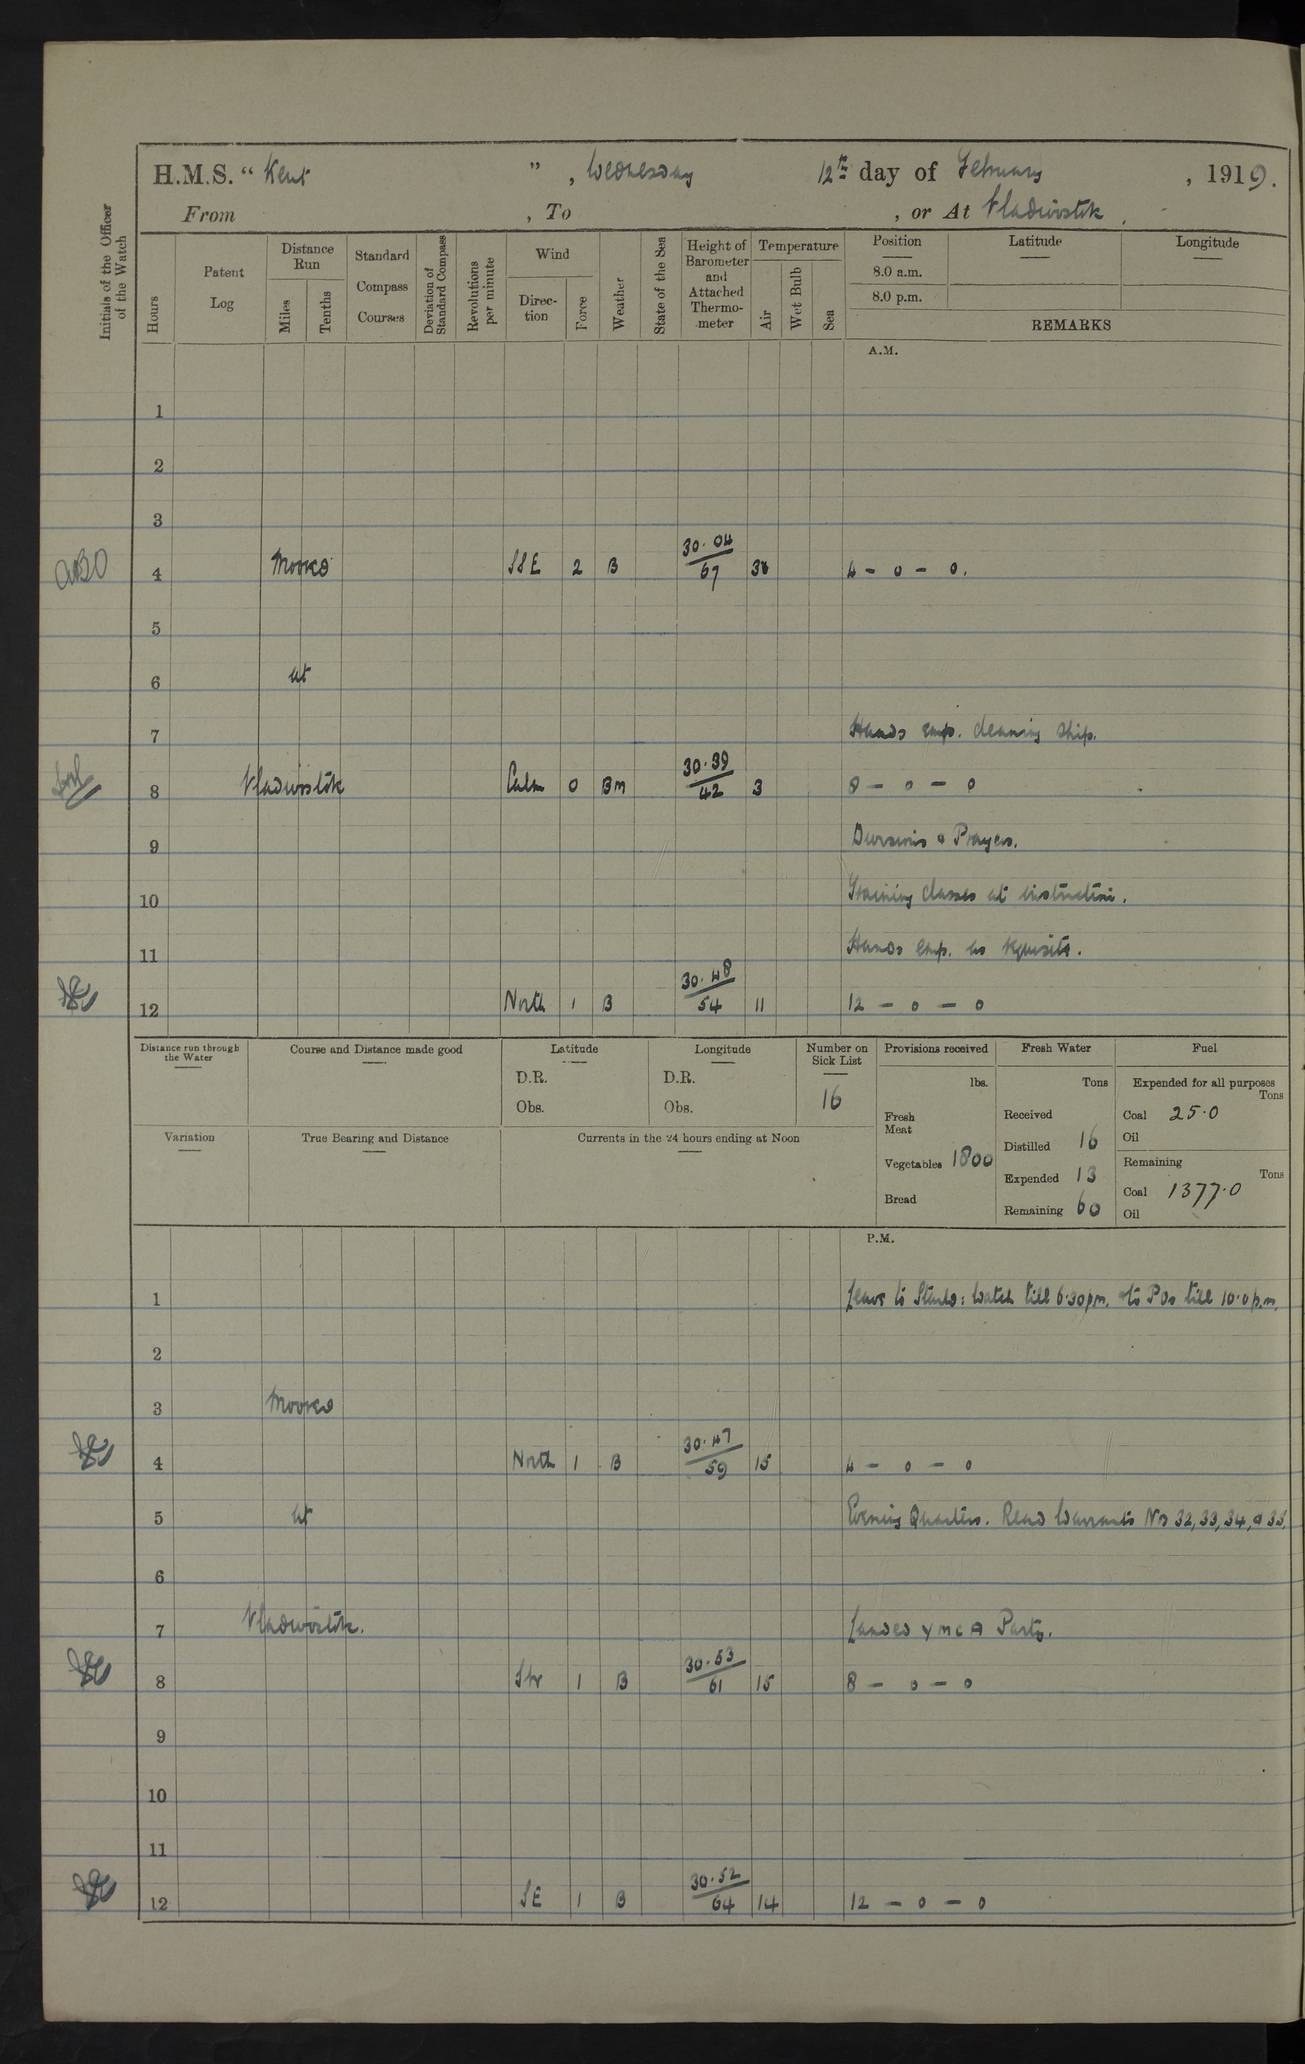 H.M.S. “ Kent ” , Wednesday 12th day of February , 1919.
From , To , or At Vladivostok .
Initials of the Officer of the Watch
Hours
Patent Log
Distance Run
Miles
Tenths
Standard Compass Courses
Deviation of Standard Compass
Revolutions per minute
Wind
Direc-tion
Force
Weather
State of the Sea
Height of Barometer and Attached Thermo-meter
Temperature
Air
Wet Bulb
Sea
Position Latitude Longitude
8.0 a.m.
8.0 p.m.
REMARKS
A.M.
1
2
3
4 Moored SSE 2 B 30.04 / 67 4 – 0 – 0.
5
6 at
7 Hands emp. cleaning ship.
8 Vladivostok Calm 0 Bm 30.39 / 42 3 8 – 0 – 0
9 Divisions & Prayers.
10 Training classes at instruction.
11 Hands emp. as requisite.
12 North 1 B 30.48 / 54 11 12 – 0 – 0
Distance run through the Water
Course and Distance made good
Latitude
D.R.
Obs.
Longitude
D.R.
Obs.
Number on Sick List
16
Provisions received
lbs.
Fresh Meat
Vegetables 1800
Bread
Fresh Water
Tons
Received
Distilled 16
Expended 13
Remaining 60
Fuel
Expended for all purposes
Tons
Coal 25.0
Oil
Remaining
Tons
Coal 1377.0
Oil
Variation
True Bearing and Distance
Currents in the 24 hours ending at Noon
P.M.
1 Leave to Starbd: Watch till 6.30pm. to POs till 10.0 p.m.
2
3 Moored
4 North 1 B 30.47 / 59 15 4 – 0 – 0
5 at Evening Quarters. Read Warrants Nos 32, 33, 34, & 35.
6
7 Vladivostok. Landed YMCA Party.
8 1 B 30.53 / 61 15 8 – 0 – 0
9
10
11
12 SE 1 B 30.52 / 64 14 12 – 0 – 0